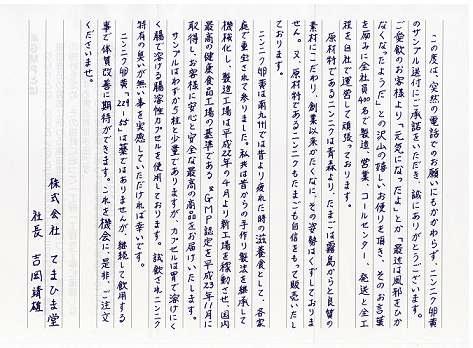 この度は、突然の電話でのお願いにもかかわらず、ニンニク卵黄
のサンプル送付にご承諾をいただき、誠にありがとうございます。
ご愛飲のお客様より、「元気になったよ」とか「最近は風邪をひか
なくなったよ」などの沢山の嬉しいお便りを頂き、そのお言葉
を励みに全社員400名で製造、営業、コールセンター、発送と全工
程を自社で運営して頑張っております。
原材料であるニンニクは青森より、たまごは霧島からと良質の
素材にこだわり、創業以来かたくなに、その姿勢はくずしておりま
せん。又、原材料であるニンニクもたまごも自信をもって販売いたし
ております。
ニンニク卵黄は南九州では昔より疲れた時の滋養食として、各家
庭で重宝されて参りました。私共は昔からの手作り製法を継承して
機械化し、製造工場は平成22年の4月より新工場を稼動させ、国内
最高の健康食品工場の基準である"GMP認定を平成23年11月に
取得し、お客様に安心と安全な最高の商品をお届けいたします。
サンプルはわずか5粒と少量でありますが、カプセルは胃で溶けにく
く腸で溶ける腸溶性カプセルを使用しております。試飲されニンニク
特有の臭いが無い事を実感していただければ幸いです。
ニンニク卵黄は薬ではありませんが、継続して飲用する
事で体質改善に期待ができます。これを機会に是非、ご注文
くださいませ。
株式会社 てまひま堂
社長 吉岡靖雄